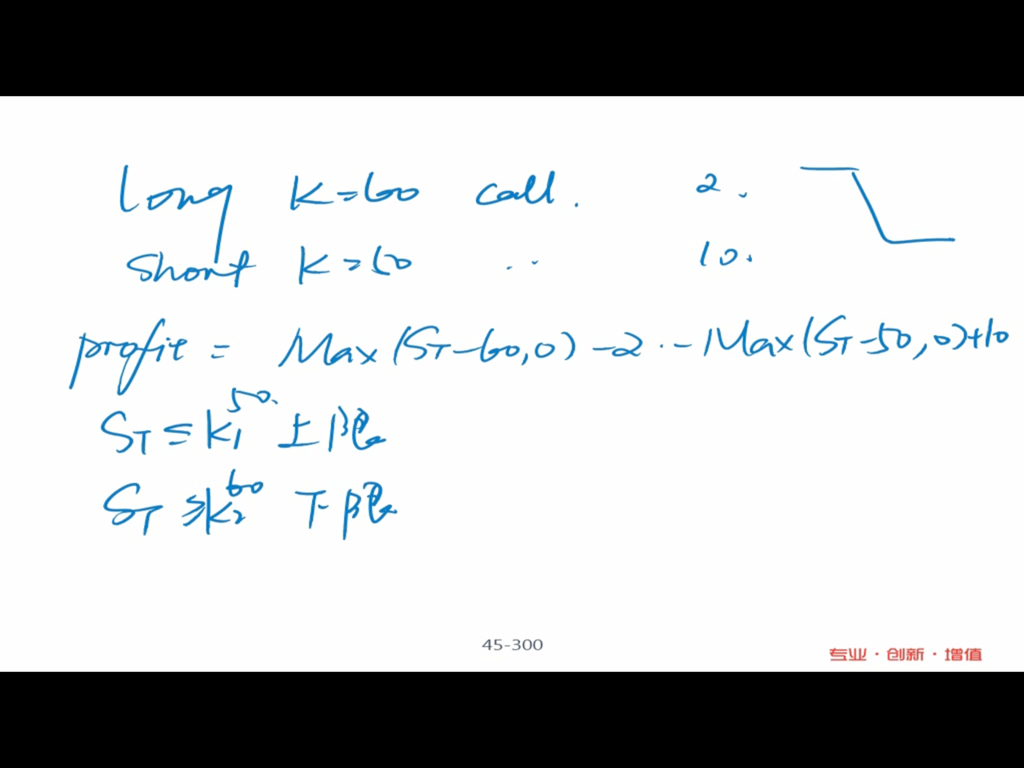 long K=60 call. 2.
short K=50 .. .. 10.
profit = Max(ST-60,0)-2.-Max(ST-50,0)+10
50.
ST≤K1 上限
60
ST≥K2 下限
45-300
专业·创新·增值